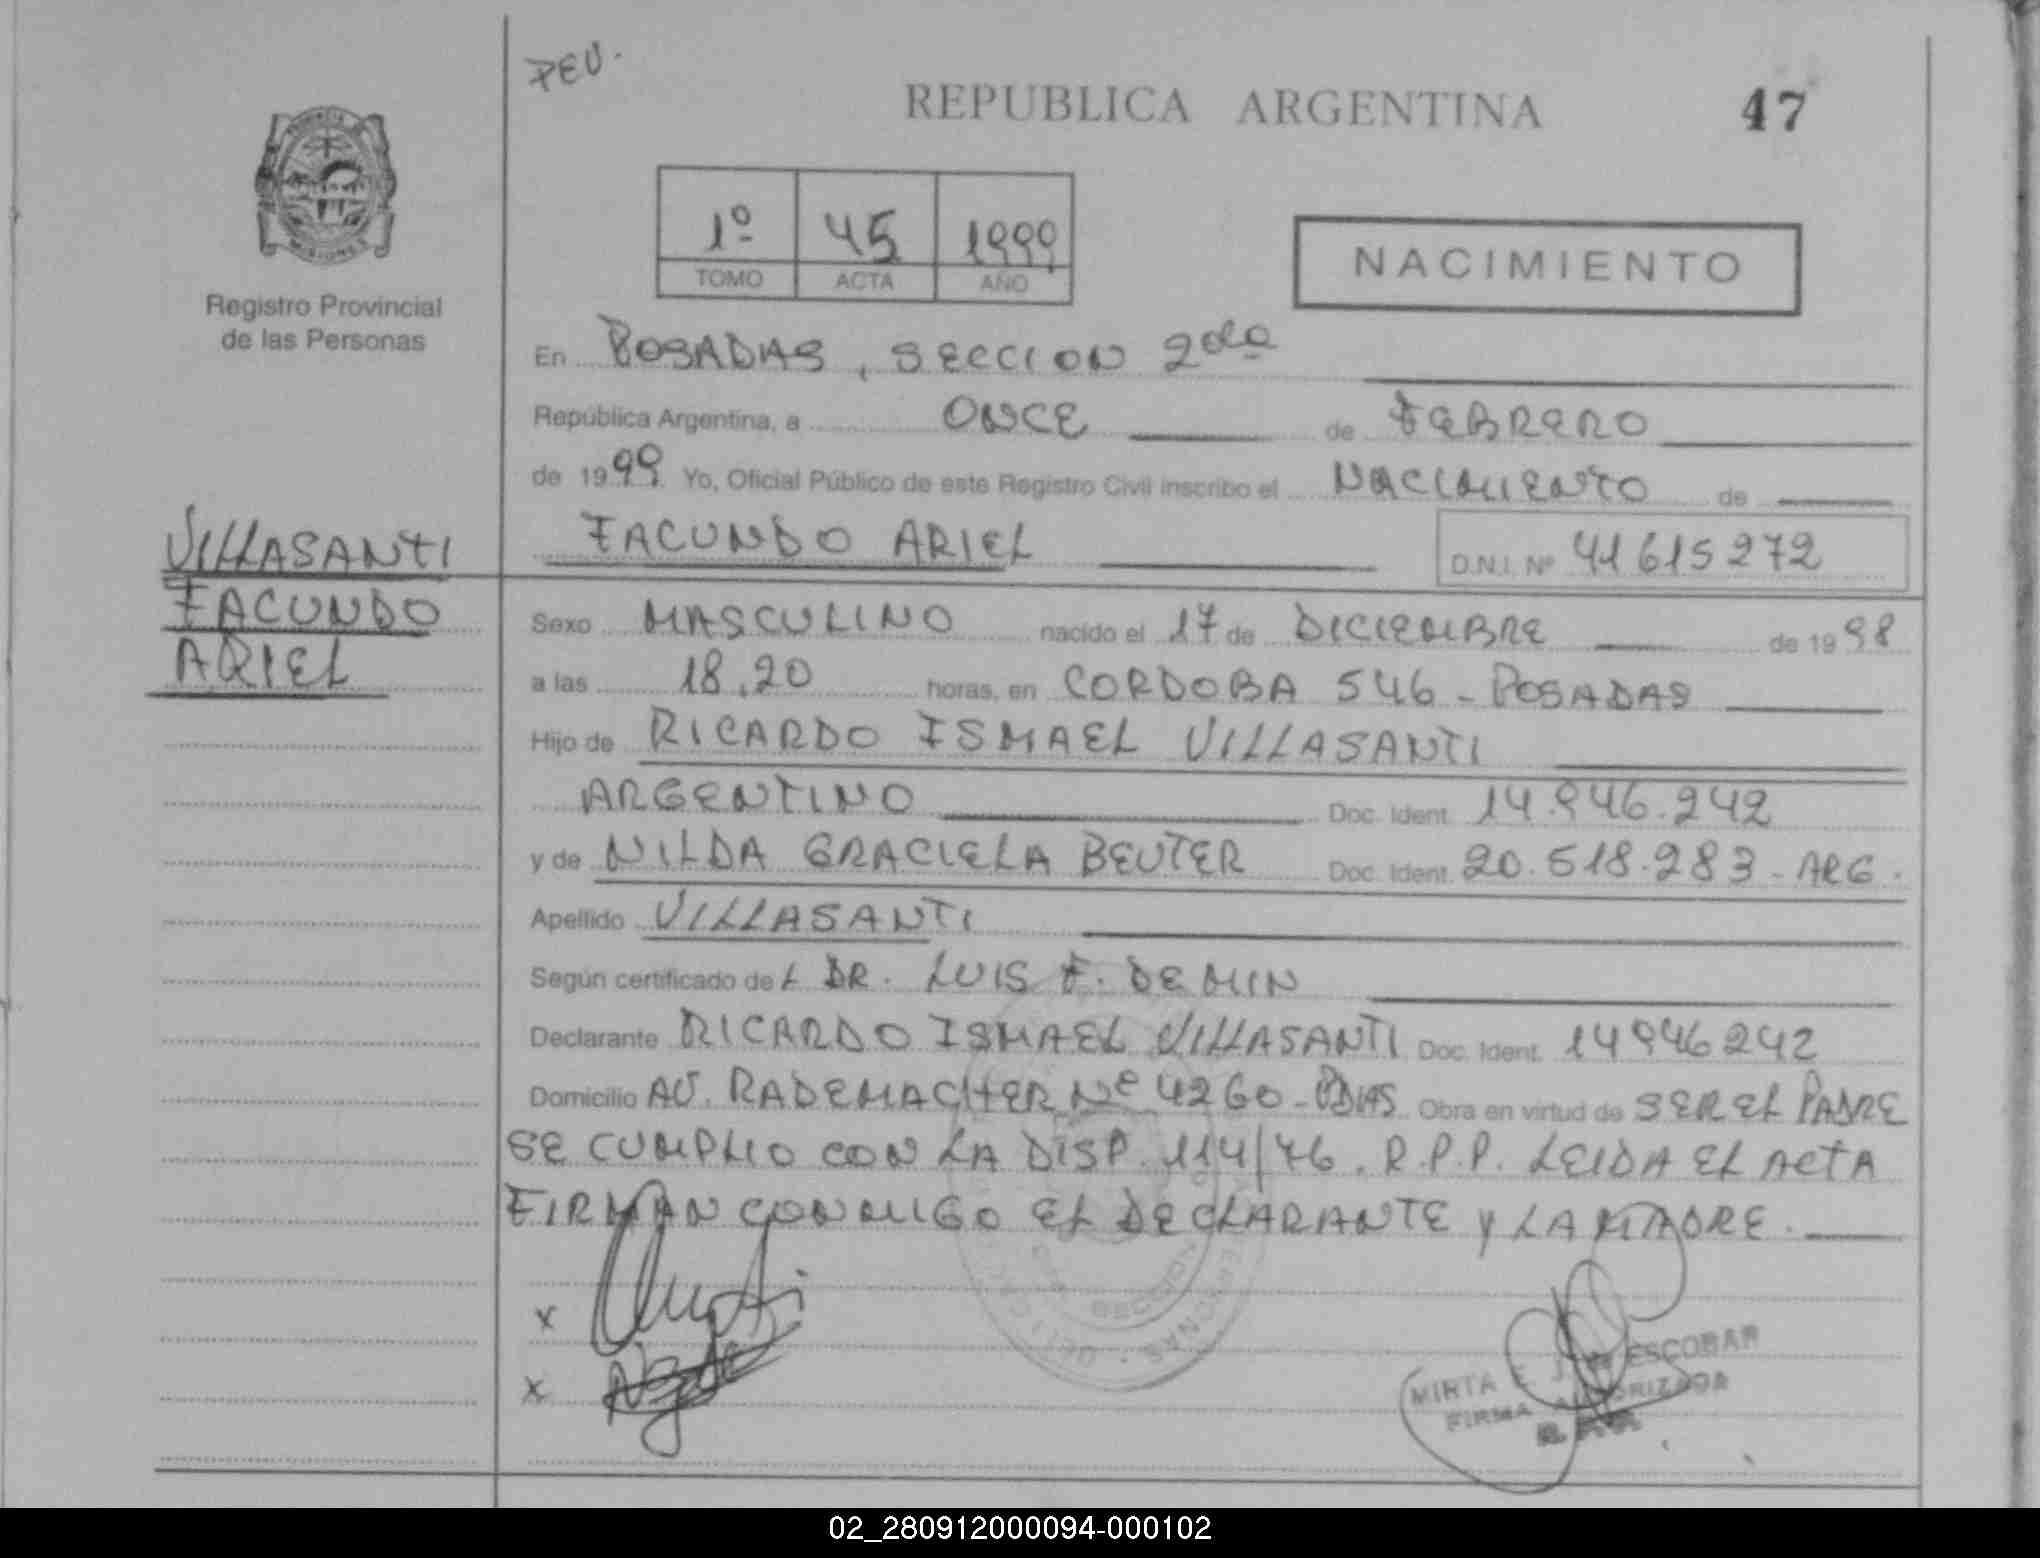 PEU.
REPUBLICA ARGENTINA
47
1º 45 1999
TOMO ACTA AÑO
NACIMIENTO
PROVINCIA
MISIONES
Registro Provincial
de las Personas
En POSADAS, SECCION 2da
República Argentina, a ONCE de FEBRERO
de 1999 Yo, Oficial Público de este Registro Civil inscribo el NACIMIENTO de
FACUNDO ARIEL D.N.I. Nº 41615272
VILLASANTI
FACUNDO
ARIEL
Sexo MASCULINO nacido el 17 de DICIEMBRE de 1998
a las 18,20 horas, en CORDOBA 546 - POSADAS
Hijo de RICARDO ISMAEL VILLASANTI
ARGENTINO Doc. Ident. 14.946.242
y de NILDA GRACIELA BEUTER Doc. Ident. 20.518.283 - ARG.
Apellido VILLASANTI
Según certificado del DR. LUIS F. DEMIN
Declarante RICARDO ISMAEL VILLASANTI Doc. Ident. 14946242
Domicilio AV. RADEMACHER Nº 4260 - PDAS Obra en virtud de SER EL PADRE
SE CUMPLIO CON LA DISP. 114/76. R.P.P. LEIDA EL ACTA
FIRMAN CONMIGO EL DECLARANTE Y LA MADRE.
x
x
SECCION
PERSONAS
MIRTA E. ESCOBAR
FIRMA AUTORIZADA
02_280912000094-000102